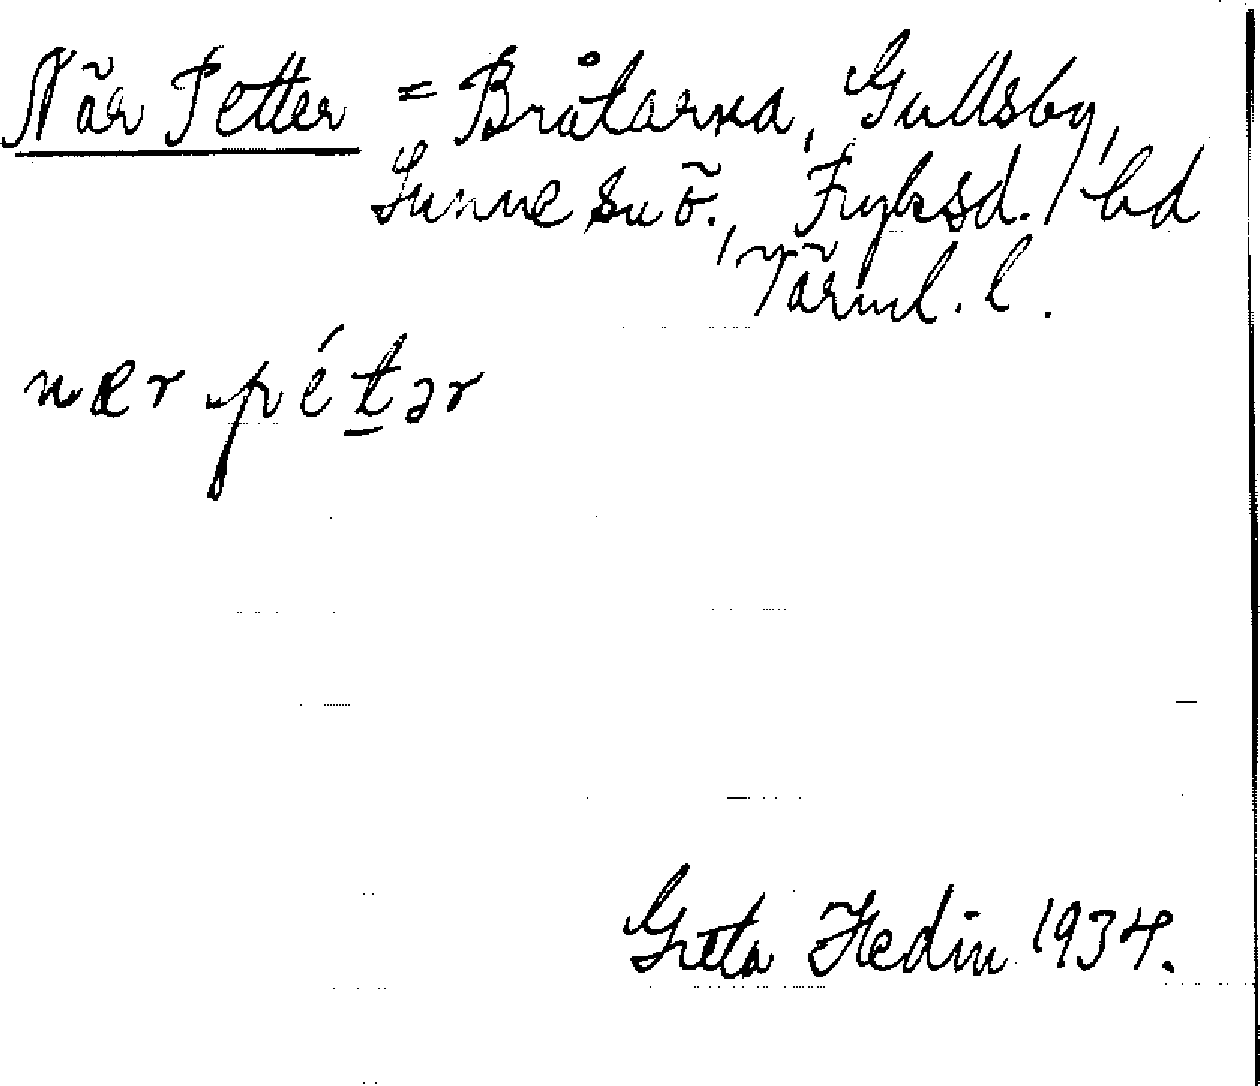 När Petter = Bråtarna, Gullsby,
Sunne sn ö., Fryksd. hd
Värml. l.
nær pétər
Greta Hedin 1934.